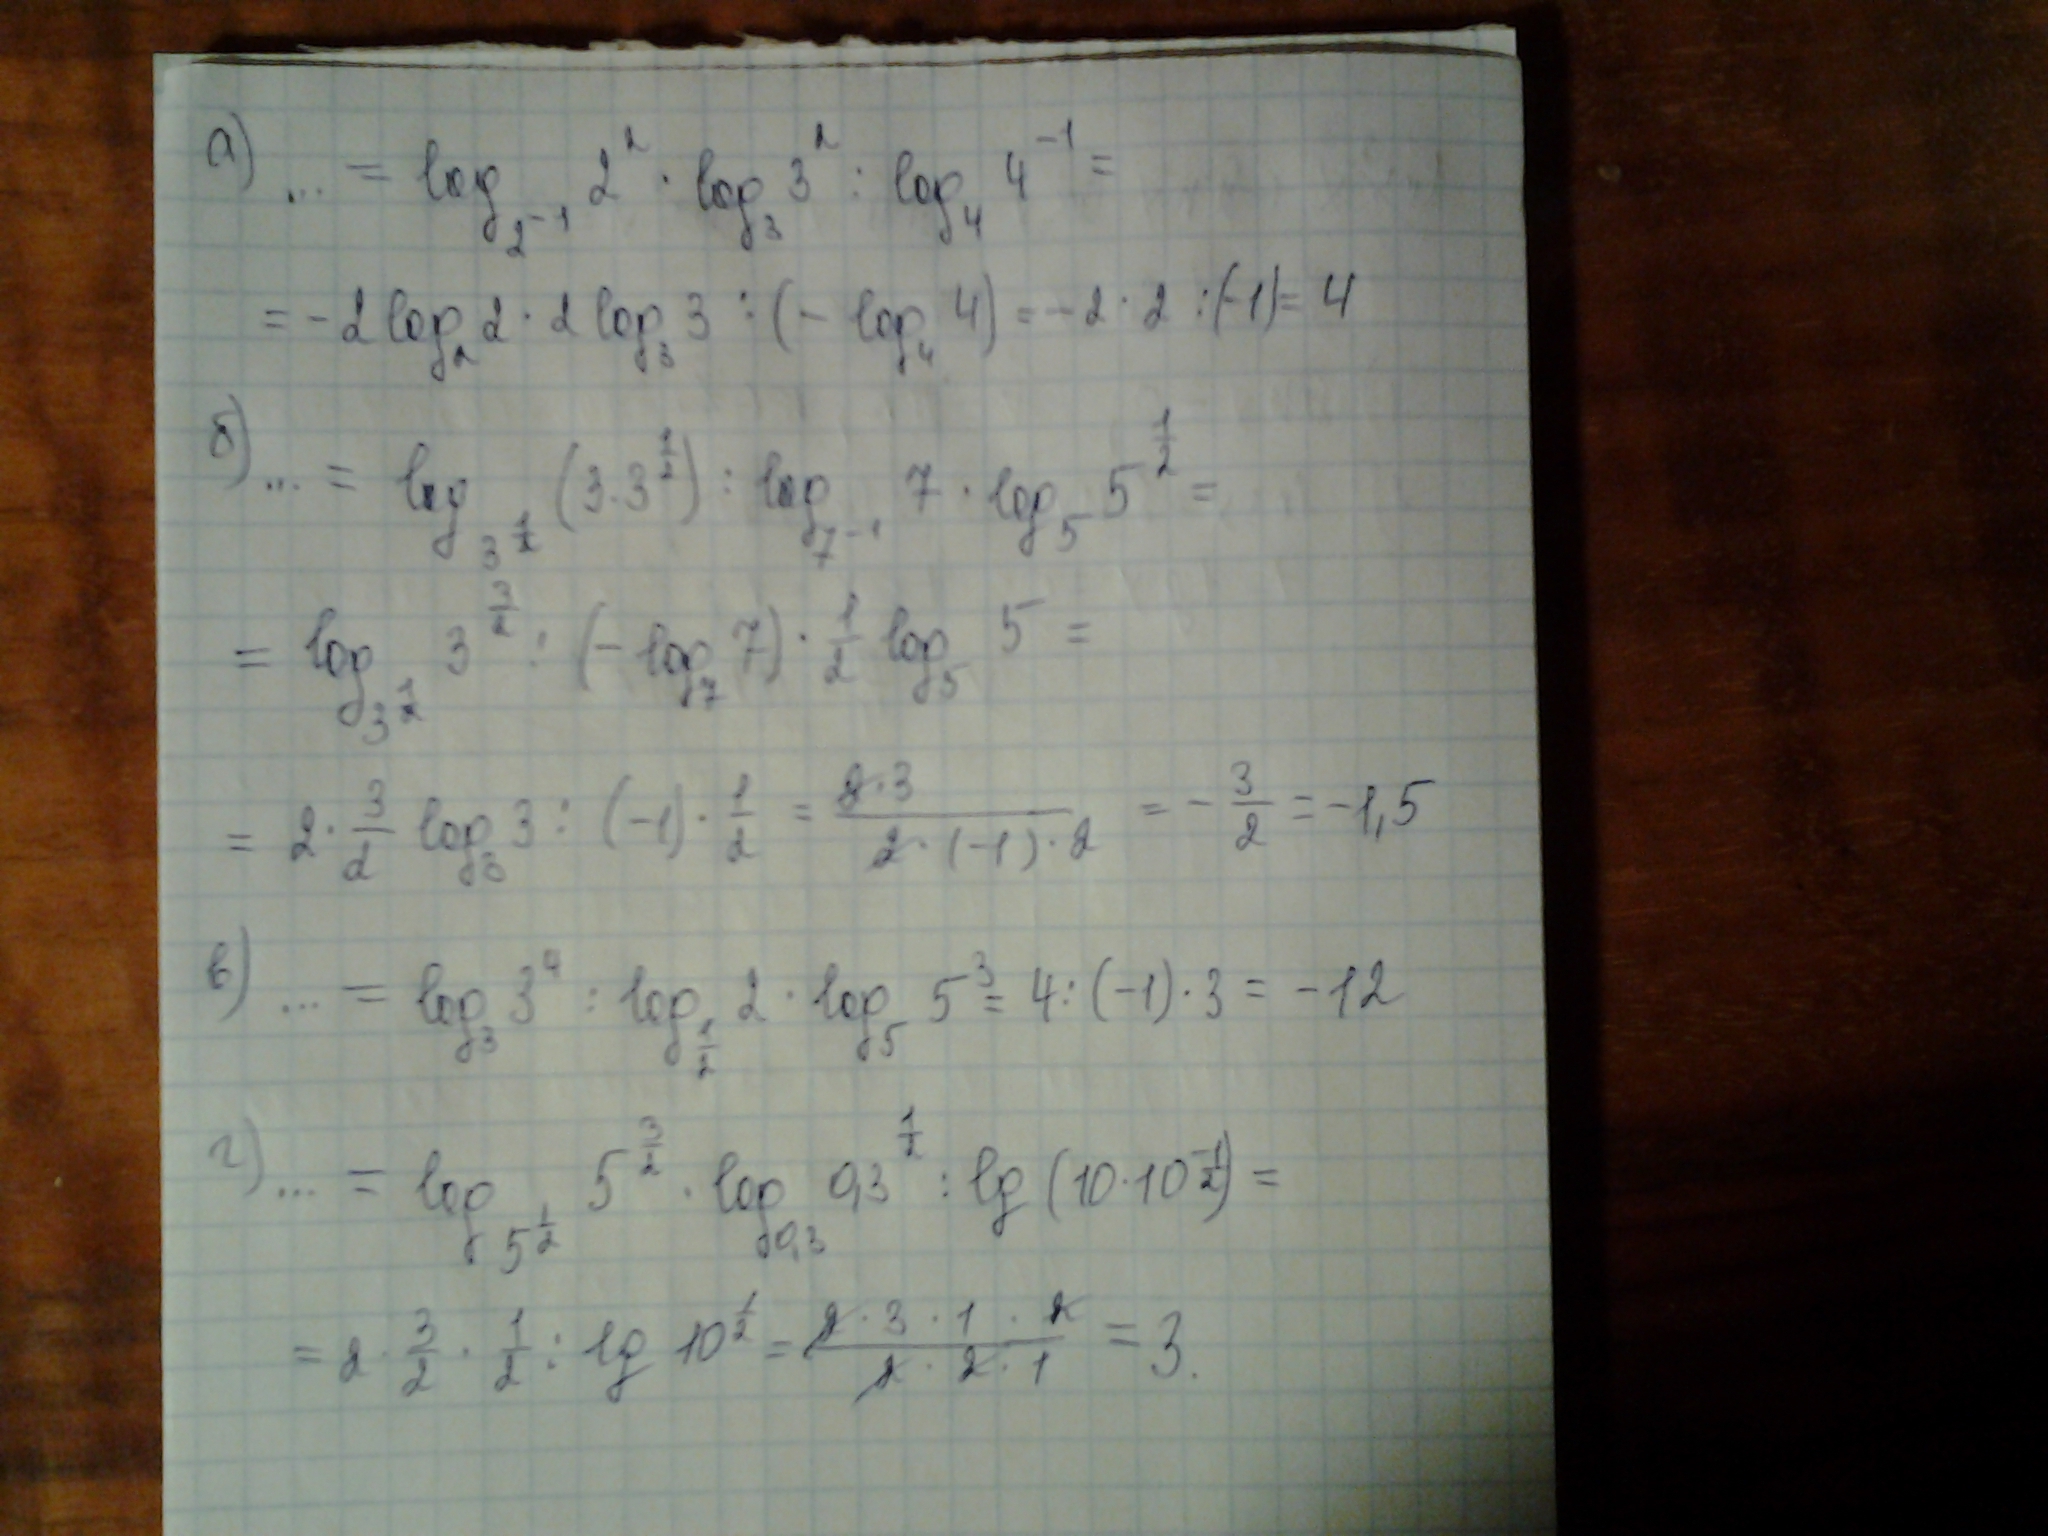 а) ... = log_{2^{-1}} 2^2 · log_3 3^2 : log_4 4^{-1} =
= -2 log_2 2 · 2 log_3 3 : (- log_4 4) = -2 · 2 : (-1) = 4
б) ... = log_{3^{1/2}} (3 · 3^{1/2}) : log_{7^{-1}} 7 · log_5 5^{1/2} =
= log_{3^{1/2}} 3^{3/2} : (- log_7 7) · 1/2 log_5 5 =
= 2 · 3/2 log_3 3 : (-1) · 1/2 = (2 · 3)/(2 · (-1) · 2) = -3/2 = -1,5
в) ... = log_3 3^4 : log_{1/2} 2 · log_5 5^3 = 4 : (-1) · 3 = -12
г) ... = log_{5^{1/2}} 5^{3/2} · log_{0,3} 0,3^{1/2} : lg (10 · 10^{-1/2}) =
= 2 · 3/2 · 1/2 : lg 10^{1/2} = (2 · 3 · 1 · 2)/(2 · 2 · 1) = 3.